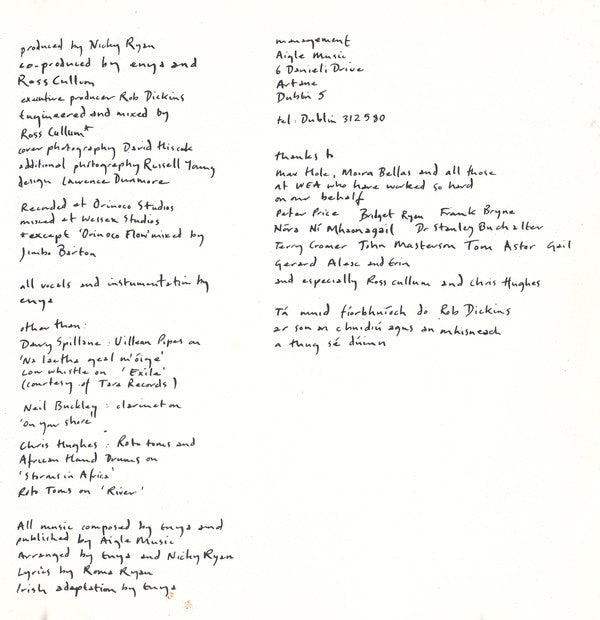 produced by Nicky Ryan
co-produced by enya and
Ross Cullum
executive producer Rob Dickins
Engineered and mixed by
Ross Cullum*
cover photography David Hiscock
additional photography Russell Young
design Lawrence Dunmore
Recorded at Orinoco Studios
mixed at Wessex Studios
*except 'Orinoco Flow' mixed by
Jimbo Barton
all vocals and instrumentation by
enya
other than:
Davy Spillane: Uillean Pipes on
'Na laetha geal m'óige'
Low whistle on 'Exile'
(courtesy of Tara Records)
Neil Buckley: clarinet on
'On your shore'
Chris Hughes: Roto toms and
African Hand Drums on
'Storms in Africa'
Roto Toms on 'River'
All music composed by Enya and
published by Aigle Music
Arranged by Enya and Nicky Ryan
Lyrics by Roma Ryan
Irish adaptation by Enya
management
Aigle Music
6 Danieli Drive
Artane
Dublin 5
tel: Dublin 312580
thanks to
Max Hole, Moira Bellas and all those
at WEA who have worked so hard
on our behalf
Peter Price Bridget Ryan Frank Bryne
Nóra Ní Mhaonagail Dr Stanley Buchalter
Terry Cromer John Masterson Tom Astor Gail
Gerard Alexa and Erin
and especially Ross Cullum and Chris Hughes
Tá muid fíorbhuíoch do Rob Dickins
ar son an chuidiú agus an mhisneach
a thug sé dúinn